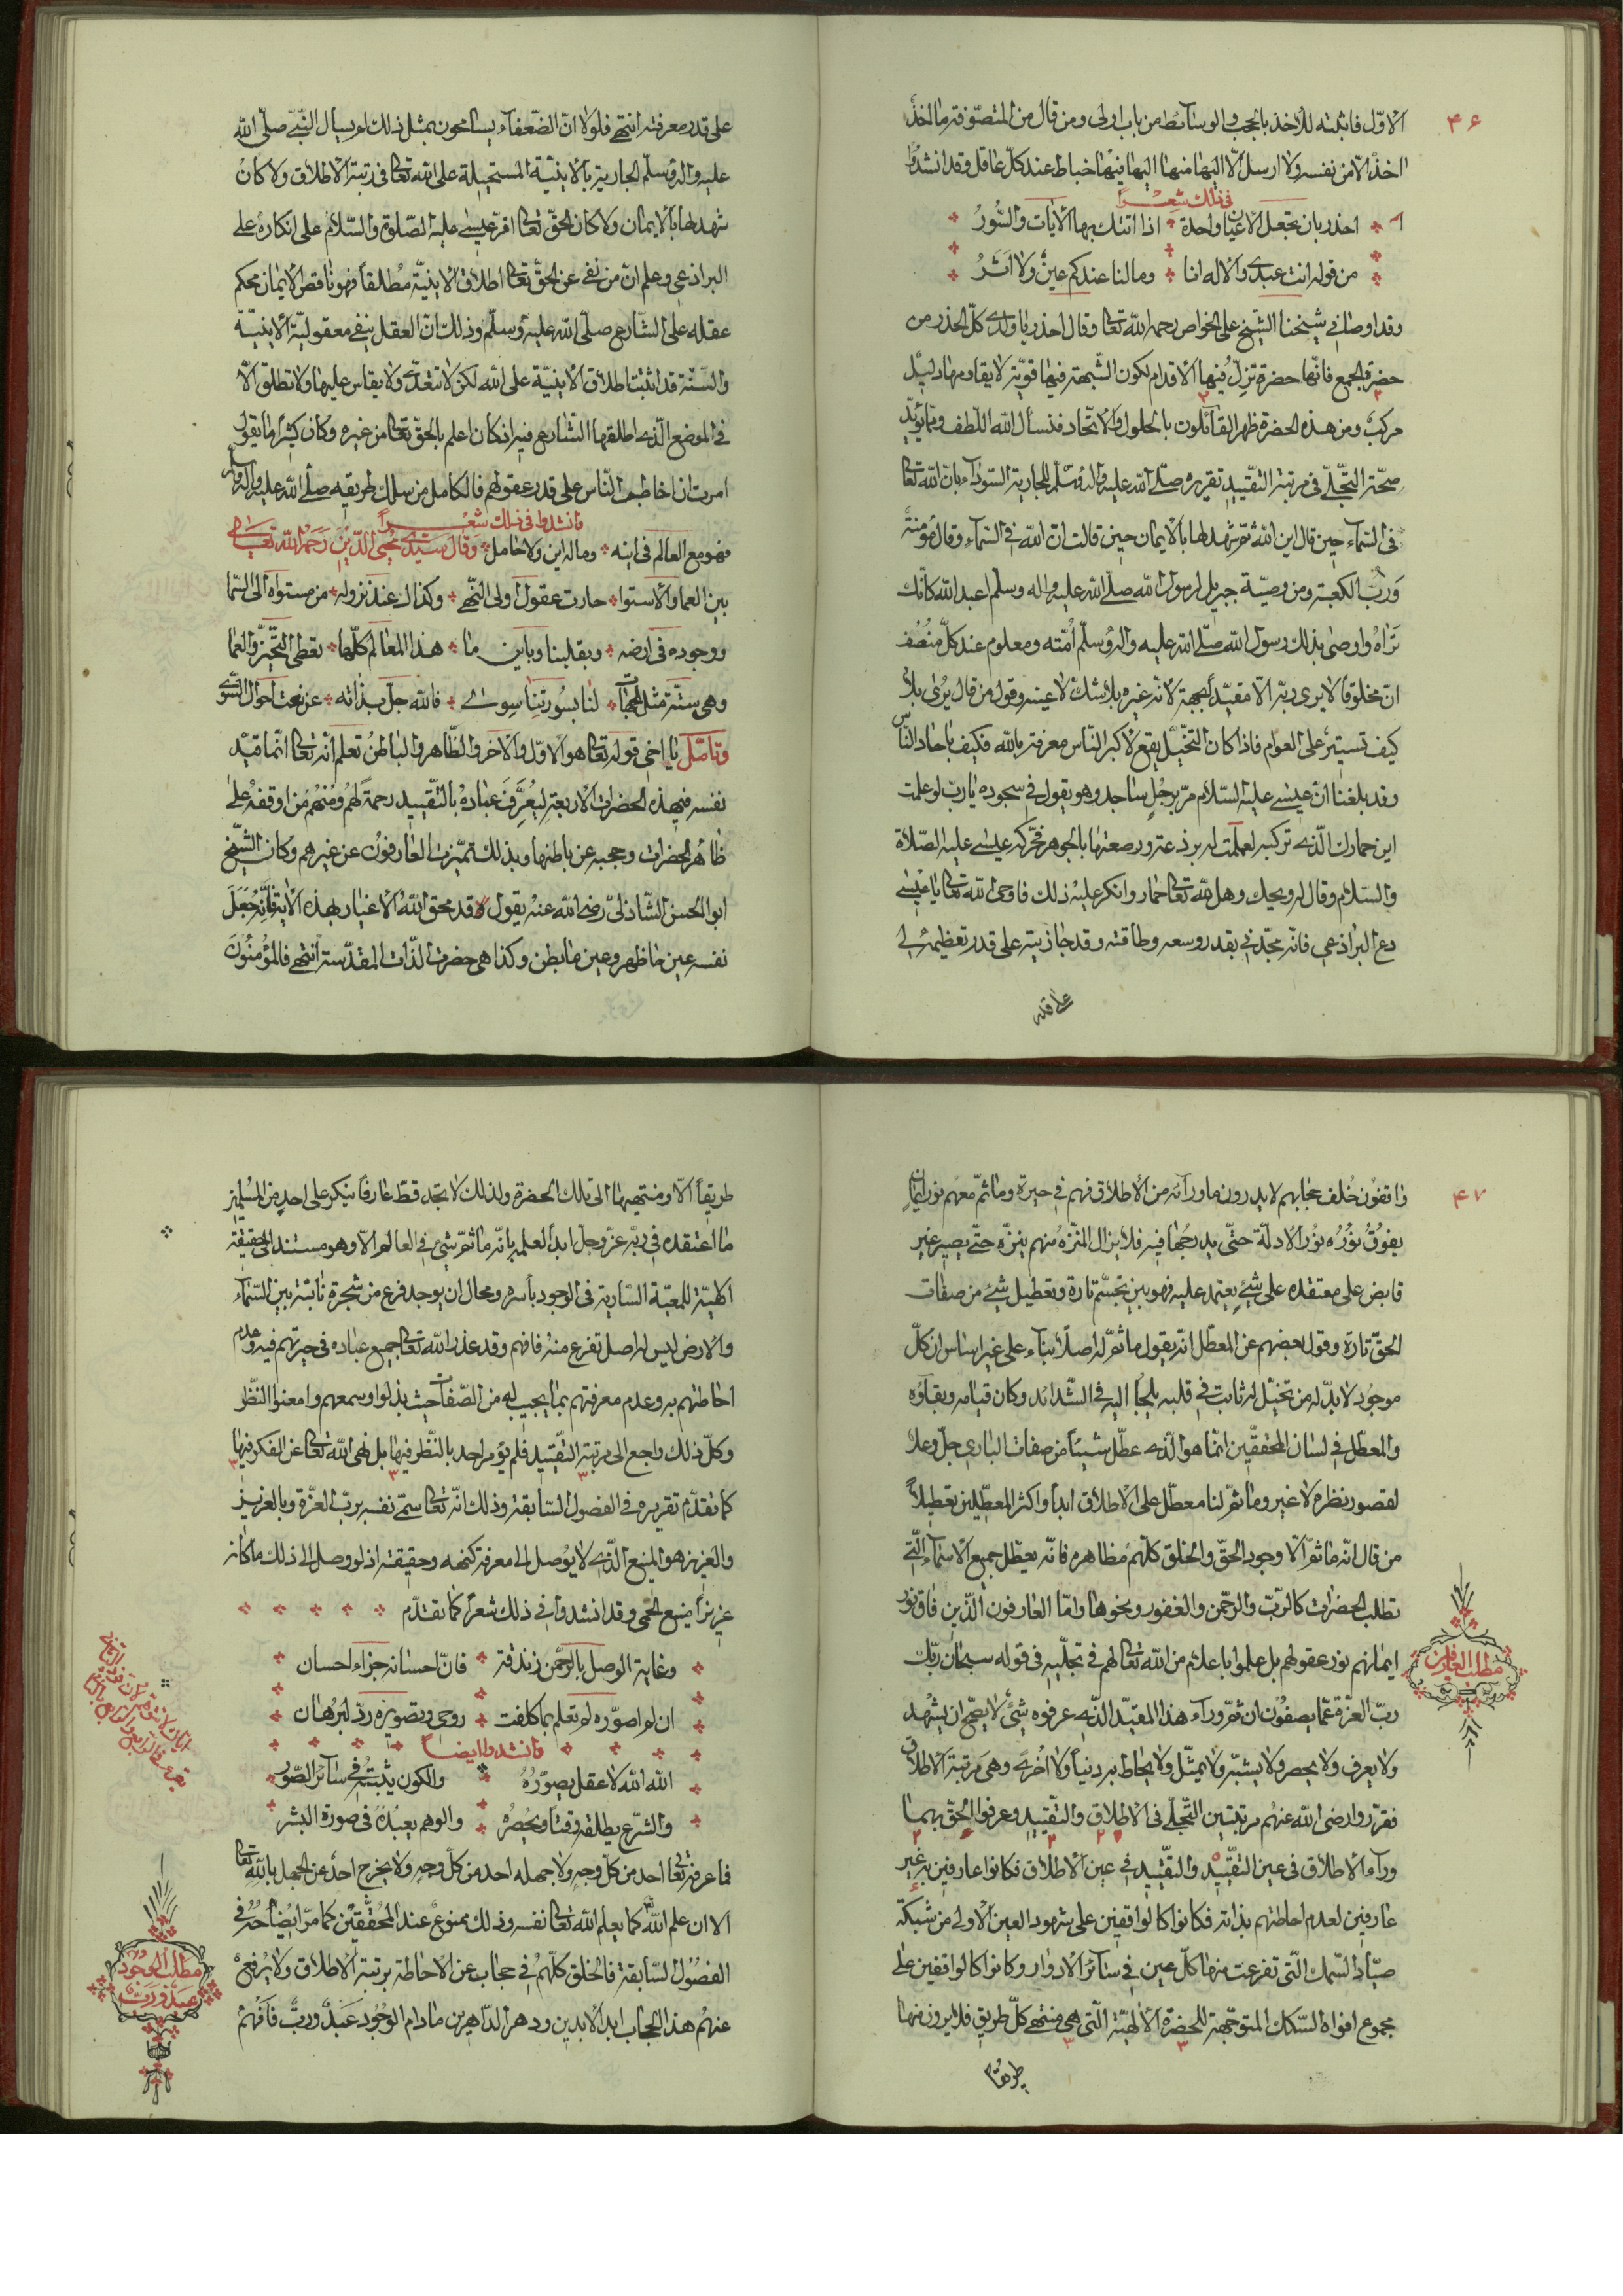 ۴۶
الاوّل فاثبته للأخذ بالحجب والوسائط من باب اولى ومن قال من المتصوّفة ما اخذ
اخذٌ الا من نفسه ولا ارسل الا اليها منها اليها فيها خباط عند كلّ عاقل وقد انشدوا
في ذلك شعرًا
احذر بان تجعل الاعيان واحدة اذا اتتك بها الآيات والسُّورُ
من قوله انت عبدى والاله انا وما لنا عندكم عينٌ ولا اثرُ
وقد اوصانى شيخنا الشيخ على الخواص رحمه الله تعالى وقال احذر يا ولدى كل الحذر من
حضرة الجمع فانّها حضرة تزلّ فيها الاقدام لكون الشّبهة فيها قويّة لا يقاومها دليل
مركب ومن هذه الحضرة ظهر القائلون بالحلول والاتّحاد فنسأل الله اللّطف وممّا يؤيّد
صحّة التجلّى فى مرتبة التقييد تقريره صلّى الله عليه واله وسلّم للجارية السّوداء بانّ الله تعالى
فى السّماء حين قال اين الله ثمّ شهد لها بالايمان حين قالت انّ الله فى السّماء وقال مؤمنة
وَربّ الكعبة ومن وصيّة جبريل لرسول الله صلّى الله عليه واله وسلم اعبد الله كانّك
تَراهُ واوصى بذلك رسول الله صلّى الله عليه واله وسلّم اُمّته ومعلوم عند كلّ مُنصف
انّ مخلوقًا لا يرى ربّه الّا مقيّد الجهة لانّه غيره بلا شكّ لا عينه وقول من قال يُرى بلا
كيف تستير على العوام فاذا كان التخيّل يقع لاكبر النّاس معرفة بالله فكيف باحاد النّاس
وقد بلغنا انّ عيسى عليه السّلام مرّ برجُلٍ ساجد وهو يقول فى سجوده يا ربّ لو علمت
اين حمارك الّذى تركبه لعملت له برذعة ورصعتها بالجوهر فحرّكه عيسى عليه الصّلاة
والسّلام وقال له ويحك وهل لله تعالى حمار وانكر عليه ذلك فاوحى الله تعالى يا عيسى
دع البراذعى فانّه مجّدنى بقدر وسعه وطاقته وقد جازيته على قدر تعظيمه لى
على قدر
على قدر معرفته انتهى فلولا انّ الضّعفاء يسامحون بمثل ذلك لم يسأل النّبىّ صلّى الله
عليه واله وسلّم الجارية بالاينيّة المستحيلة على الله تعالى فى رتبة الاطلاق ولا كان
شهد لها بالايمان ولا كان الحقّ تعالى اقرّ عيسى عليه الصّلوة والسّلام على انكاره على
البراذعى وعلم انّ من نفى عن الحقّ تعالى اطلاق الاينيّة مُطلقاً فهو ناقص الايمان محكم
عقله على الشّارع صلّى الله عليه وسلّم وذلك انّ العقل ينفى معقوليّة الاينيّة
والسّنّة قد اثبت اطلاق الاينيّة على الله لكن لا تتعدّى ولا يقاس عليها ولا تطلق الّا
فى الموضع الّذى اطلقها الشّارع فيه اذ كان اعلم بالحقّ تعالى من غيره وكان كثيراً ما يقول
امرت ان اخاطب النّاس على قدر عقولهم فالكامل من سلك طريقه صلّى الله عليه واله وسلّم
وانشدوا فى ذلك شعرًا
فهو مع العالم فى اينه وماله اين ولا حامل وقال سيّدى محيى الدّين رحمه الله تعالى
بين العما والاستوا حارت عقول اولى النّهى وكذاك عند نزوله من مستواه الى السّما
ووجوده فى ارضه وبقلبنا وباين ما هذا المعالم كلّها تعطى التّحيّز والعما
وهى ستّة مثل الجهات لنا بسُورتنا سوى فالله جلّ بذاته عن نعت احوال السّوى
وتأمّل يا اخى قوله تعالى هو الاوّل والآخر والظّاهر والباطنُ تعلم انّه تعالى انّما قيّد
نفسه فى هذه الحضرات الاربعة ليُعرِّفَ عباده بالتّقييد رحمةً لهم ومنهم من اوقفه على
ظاهر الحضرات وحجبه عن باطنها وبذلك تميّزت العارفون عن غيرهم وكان الشّيخ
ابو الحسن الشّاذلىّ رضى الله عنه يقول قد محق اللهُ الاغيار بهذه الآية فانّه جَعَل
نفسه عين ما ظهر وعين ما بطن وكذا هى حضرت الذّات المقدّسة انتهى فالمؤمنون
۴۷
واقفون خلف حجابهم لا يدرون ما ورآئه من الاطلاق فهم فى حيرة وما ثمّ معهم نور ايمان
يفوقُ نُورُه نُورُ الادلّة حتّى يدرجُها فيه فلا يزال المنزّهُ منهم ينزّه حتّى يصير غير
قابض على معتقده على شىءٍ يعتمد عليه فهو بين تجسّم تارة وتعطيل شىء من صفات
الحقّ تارة وقول بعضهم عن المعطّل انّه يقول ما ثمّ اله اصلًا بناء على غير اساس لانّ كلّ
موجُود لا بدّ له من تخيّل له ثابت فى قلبه يلجأ اليه فى الشّدائد وكان قيامه وبقاؤه
والمعطّل فى لسان المحقّقين انّما هو الّذى عطّل شيئاً من صفات البارى جلّ وعلا
لقصور نظره لا غير وما ثمّ لنا معطّل على الاطلاق ابدًا واكثر المعطّلين تعطيلاً
من قال انّه ما ثمّ الّا وجود الحقّ والخلق كلّهم مظاهره فانّه يعطّل جميع الاسماء الّتى
تطلب الحضرات كالرّبّ والرّحمن والغفور ونحوها وامّا العارفون الّذين فاق نور
ايمانهم نور عقولهم بل علموا باعلام من الله تعالى لهم فى تجلّيه فى قوله سبحان ربّك
مطلب العارفين
ربّ العزّة عمّا يصفون انّ ثمّ وراء هذا المقيّد الّذى عرفوه شىءٌ لا يصحّ ان يشهد
ولا يعرف ولا يحصر ولا يشبّه ولا يمثّل ولا يحاط به دنياً ولا اُخرى وهى مرتبة الاطلاق
فقرّروا رضى الله عنهم مرتبتين التّجلّى فى الاطلاق والتّقييد وعرفوا الحقّ بهما
ورآء الاطلاق فى عين التقييد والتّقييد فى عين الاطلاق فكانوا عارفين به غير
عارفين لعدم احاطتهم بذاته فكانوا كالواقفين على شهود العين الاولى من شبكة
صيّاد السّمك الّتى تفرعت منها كلّ عين فى سآئر الادوار وكانوا كالواقفين على
مجموع افواه السّكك المتوجّهة للحضرة الالهيّة الّتى هى منتهى كلّ طريق فلا يرون منها
طريقا
طريقاً الّا ومنتهيها الى تلك الحضرة ولذلك لا تجد قطّ عارفًا ينكر على احدٍ من المسلمين
ما اعتقده فى ربّه عزّ وجلّ ابدًا لعلمه بانّه ما ثمّ شىء فى العالم الّا وهو مستند الى الحقيقة
الالهيّة للمعيّة السّارية فى الوجود بأسره ومحال ان يوجد فرع من شجرة نابتة بين السّماء
والارض ليس له اصل تفرع منهُ فافهم وقد عذر الله تعالى جميع عباده فى حيرتهم فيه وعدم
احاطتهم به وعدم معرفتهم بما يجب له من الصّفات حيث بذلوا وسعهم وامعنوا النّظر
وكلّ ذلك راجع الى مرتبة التّقييد فلم يؤمر احد بالنّظر فيها بل نهى الله تعالى عن الفكر فيها
كما تقدّم تقريره فى الفصول السّابقة وذلك انّه تعالى سمّى نفسه بربّ العزّة وبالعزيز
والعزيز هو المنيع الّذى لا يوصل الى معرفة كنهه وحقيقته اذ لو وصل الى ذلك ما كان
عزيزاً منيع الحمى وقد انشدوا فى ذلك شعراً كما تقدّم
وغاية الوصل بالرّحمن زندقة فانّ احسانه جزاء لحسان
ان لم اصوّره لم تعلم بما كلفت روحى وتصويره ردّ لبرهان
وانشدوا ايضاً
الله الله لا عقل يصوّرهُ والكون يثبته فى سآئر الصّور
والشّرع يطلقه وقتا ويحصره والوهم يعبُده فى صورة البشر
فما عرفه تعالى احد من كلّ وجهٍ ولا جهله احد من كلّ وجهٍ ولا يخرج احدٌ عن الجهل بالله تعالى
الا ان علم الله كما يعلم الله تعالى نفسه وذلك ممنوعٌ عند المحقّقين كما مرّ ايضاحهُ فى
الفصُول السّابقة فالخلق كلّهم فى حجاب عن الاحاطة برتبة الاطلاق ولا يُرفع
عنهم هذا الحجاب ابد الابدين ودهر الدّاهرين ما دام الوجُود عَبدٌ وربٌّ فافهم
مطلب الوجود عبد ورب